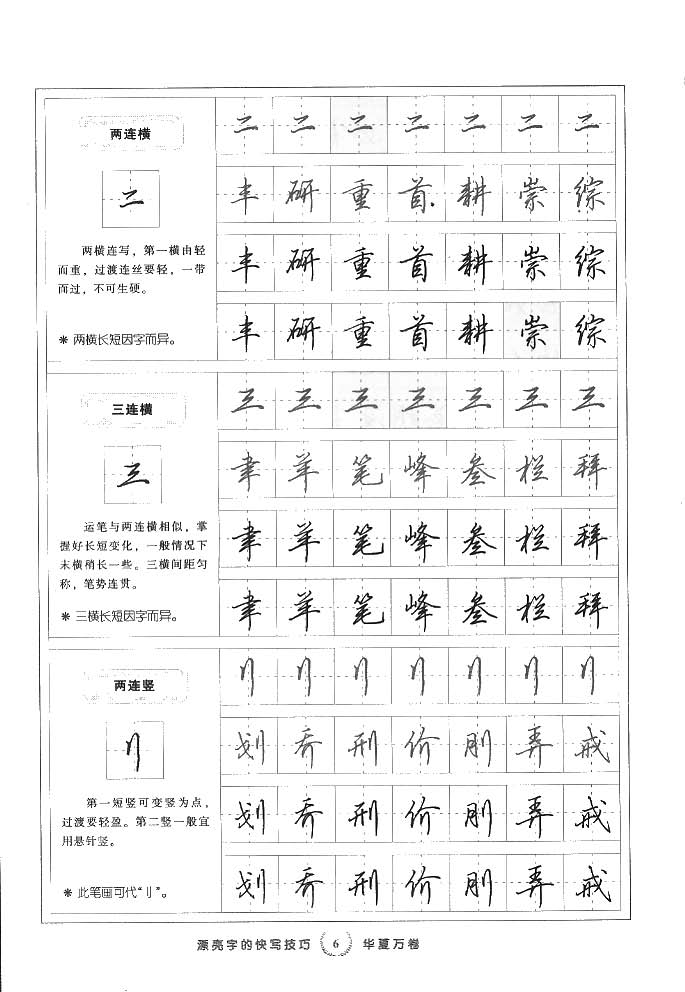 两连横
二
两横连写，第一横由轻
而重，过渡连丝要轻，一带
而过，不可生硬。
* 两横长短因字而异。
二 二 二 二 二 二 二
丰 研 重 首 耕 崇 综
丰 研 重 首 耕 崇 综
丰 研 重 首 耕 崇 综
三连横
三
运笔与两连横相似，掌
握好长短变化，一般情况下
末横稍长一些。三横间距匀
称，笔势连贯。
* 三横长短因字而异。
三 三 三 三 三 三 三
聿 羊 笔 峰 叁 栏 拜
聿 羊 笔 峰 叁 栏 拜
聿 羊 笔 峰 叁 栏 拜
两连竖
刂
第一短竖可变竖为点，
过渡要轻盈。第二竖一般宜
用悬针竖。
* 此笔画可代“刂”。
刂 刂 刂 刂 刂 刂 刂
划 乔 刑 价 刚 弄 戒
划 乔 刑 价 刚 弄 戒
划 乔 刑 价 刚 弄 戒
漂亮字的快写技巧 6 华夏万卷